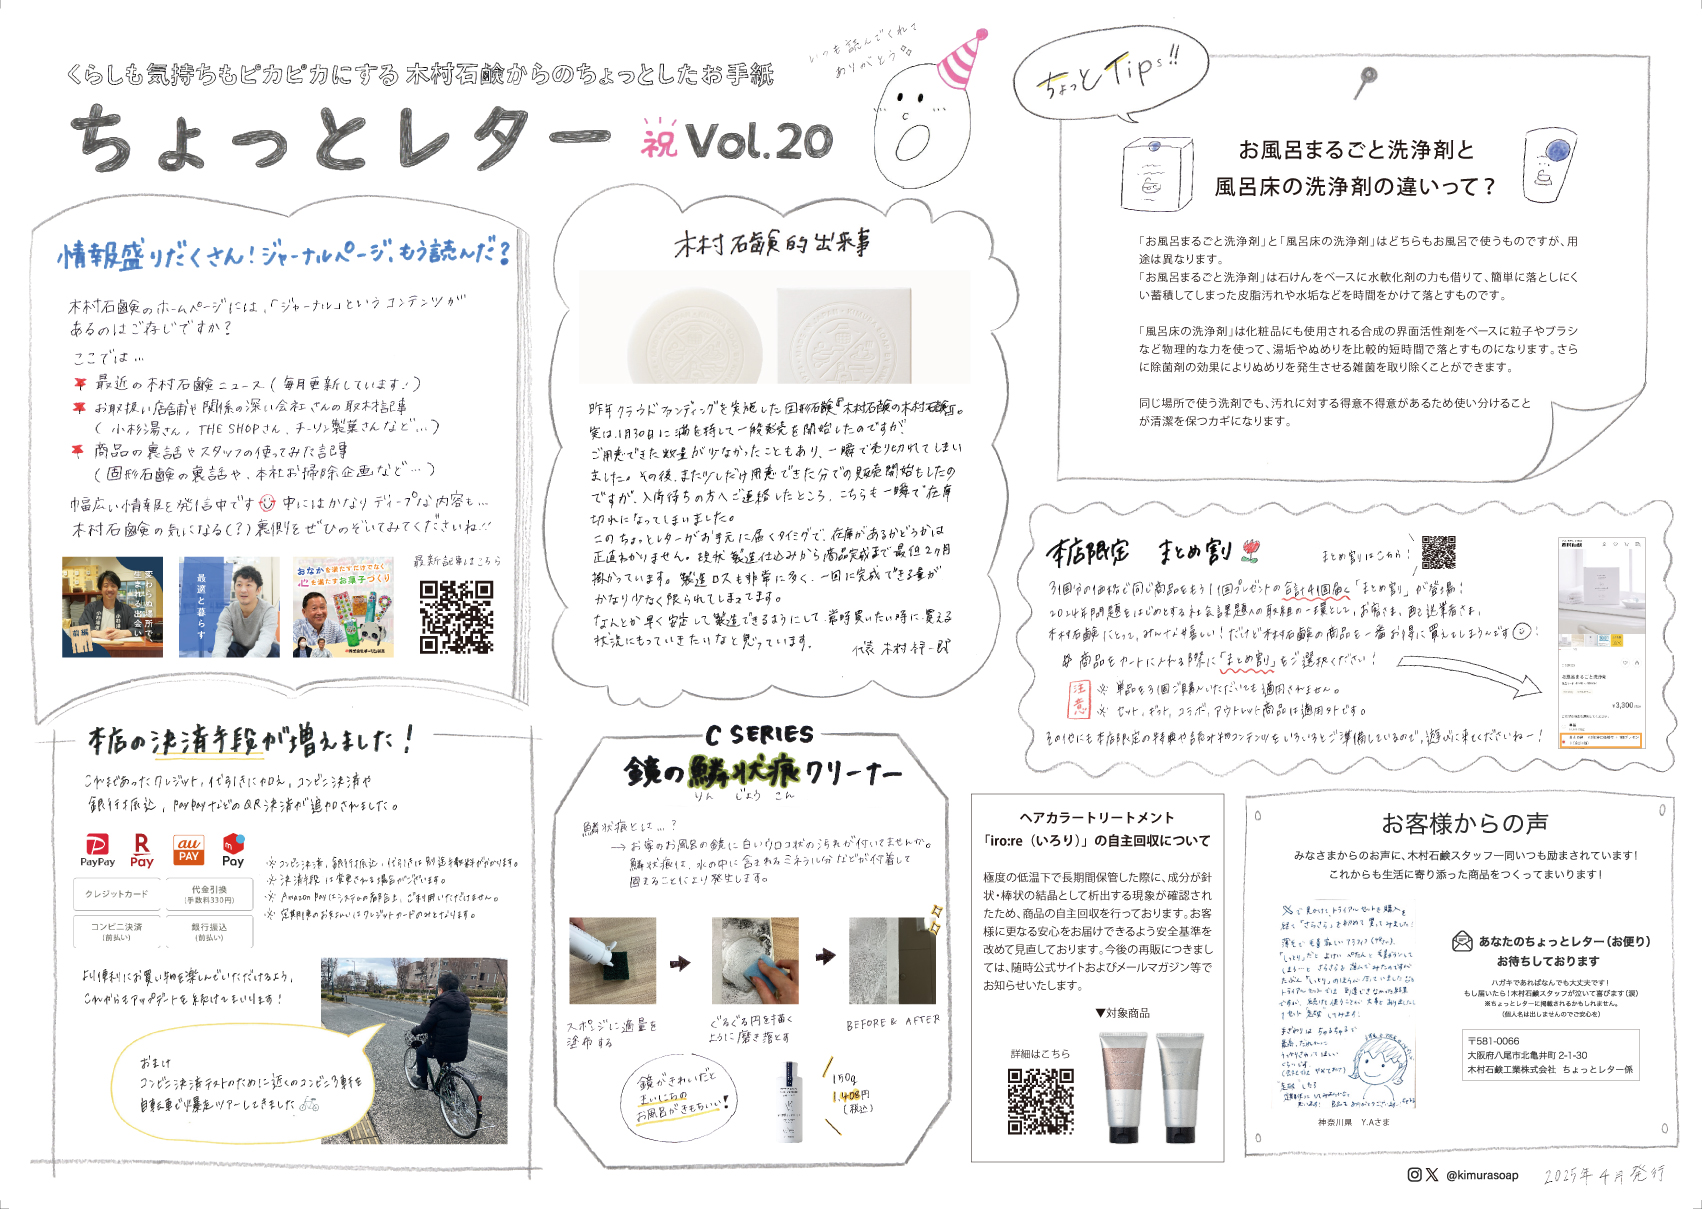 くらしも気持ちもピカピカにする 木村石鹸からのちょっとしたお手紙
ちょっとレター
祝 Vol.20
いつも読んでくれて
ありがとう
情報盛りだくさん！ジャーナルページ、もう読んだ？
木村石鹸のホームページには、「ジャーナル」というコンテンツが
あるのはご存じですか？
ここでは…
最近の木村石鹸ニュース（毎月更新しています！）
お取扱い店舗や関係の深い会社さんの取材記事
（小杉湯さん、THE SHOPさん、チーリン製菓さんなど…）
商品の裏話やスタッフの使ってみた記事
（固形石鹸の裏話や、本社お掃除企画など…）
幅広い情報を発信中です 中にはかなりディープな内容も…
木村石鹸の気になる（？）裏側をぜひのぞいてみてくださいね！！
変わらぬ場所で、
生まれる出会い
前編
最適と暮らす
おなかを満たすだけでなく
心を満たすお菓子づくり
最新記事はこちら
木村石鹸的出来事
昨年クラウドファンディングを実施した固形石鹸『木村石鹸の木村石鹸』。
実は、1月30日に満を持して一般発売を開始したのですが、
ご用意できた数量が少なかったこともあり、一瞬で売り切れてしまい
ました。その後、また少しだけ用意できた分での販売開始もしたの
ですが、入荷待ちの方へご連絡したところ、こちらも一瞬で在庫
切れになってしまいました。
このちょっとレターがお手元に届くタイミングで、在庫があるかどうかは
正直わかりません。現状 製造仕込みから商品完成まで最低2ヶ月
掛かっています。製造ロスも非常に多く、一回に完成できる量が
かなり少なく限られてしまってます。
なんとか早く安定して製造できるようにして、常時買いたい時に買える
状況にもっていきたいなと思っています。
代表 木村祥一郎
ちょっとTips!!
お風呂まるごと洗浄剤と
風呂床の洗浄剤の違いって？
「お風呂まるごと洗浄剤」と「風呂床の洗浄剤」はどちらもお風呂で使うものですが、用
途は異なります。
「お風呂まるごと洗浄剤」は石けんをベースに水軟化剤の力も借りて、簡単に落としにく
い蓄積してしまった皮脂汚れや水垢などを時間をかけて落とすものです。
「風呂床の洗浄剤」は化粧品にも使用される合成の界面活性剤をベースに粒子やブラシ
など物理的な力を使って、湯垢やぬめりを比較的短時間で落とすものになります。さら
に除菌剤の効果によりぬめりを発生させる雑菌を取り除くことができます。
同じ場所で使う洗剤でも、汚れに対する得意不得意があるため使い分けること
が清潔を保つカギになります。
本店限定 まとめ割
まとめ割はこちら！
3個分の価格で同じ商品をもう1個プレゼントの合計4個届く「まとめ割」が登場！
2024年問題をはじめとする社会課題への取り組みの一環として、お客さま、配送業者さま、
木村石鹸にとって、みんなが嬉しい！だけど木村石鹸の商品を一番お得に買えてしまうんです！
商品をカートに入れる際に「まとめ割」をご選択ください！
注意
※ 単品を3個ご購入いただいても適用されません。
※ セット、ギフト、コラボ、アウトレット商品は適用外です。
その他にも本店限定の特典や読み物コンテンツをいろいろとご準備しているので、遊びに来てくださいねー！
¥3,300
本店の決済手段が増えました！
これまであったクレジット、代引きに加え、コンビニ決済や
銀行振込、PayPayなどのQR決済が追加されました。
PayPay
R Pay
au PAY
Pay
クレジットカード
代金引換
(手数料330円)
コンビニ決済
(前払い)
銀行振込
(前払い)
※ コンビニ決済、銀行振込、代引きは別途手数料がかかります。
※ 決済手段は変更される場合がございます。
※ Amazon Payはシステムの都合上、ご利用いただけません。
※ 定期便のお支払いはクレジットカードのみとなります。
より便利にお買い物を楽しんでいただけるよう、
これからもアップデートを続けてまいります！
おまけ
コンビニ決済テストのために近くのコンビニ3軒を
自転車で爆走ツアーしてきました
C SERIES
鏡の鱗状痕クリーナー
りん じょう こん
鱗状痕とは…？
→ お家のお風呂の鏡に白いウロコ状の汚れが付いてませんか。
鱗状痕は、水の中に含まれるミネラル分などが付着して
固まることにより発生します。
スポンジに適量を
塗布する
ぐるぐる円を描く
ように磨き落とす
BEFORE & AFTER
鏡がきれいだと
まいにちの
お風呂がきもちいい！
150g
1,408円
（税込）
ヘアカラートリートメント
「iro:re（いろり）」の自主回収について
極度の低温下で長期間保管した際に、成分が針
状・棒状の結晶として析出する現象が確認され
たため、商品の自主回収を行っております。お客
様に更なる安心をお届けできるよう安全基準を
改めて見直しております。今後の再販につきまし
ては、随時公式サイトおよびメールマガジン等で
お知らせいたします。
▼対象商品
詳細はこちら
お客様からの声
みなさまからのお声に、木村石鹸スタッフ一同いつも励まされています！
これからも生活に寄り添った商品をつくってまいります！
神奈川県 Y.Aさま
あなたのちょっとレター（お便り）
お待ちしております
ハガキであればなんでも大丈夫です！
もし届いたら！木村石鹸スタッフが泣いて喜びます（涙）
※ちょっとレターに掲載されるかもしれません。
（個人名は出しませんのでご安心を）
〒581-0066
大阪府八尾市北亀井町 2-1-30
木村石鹸工業株式会社 ちょっとレター係
@kimurasoap
2025年4月発行